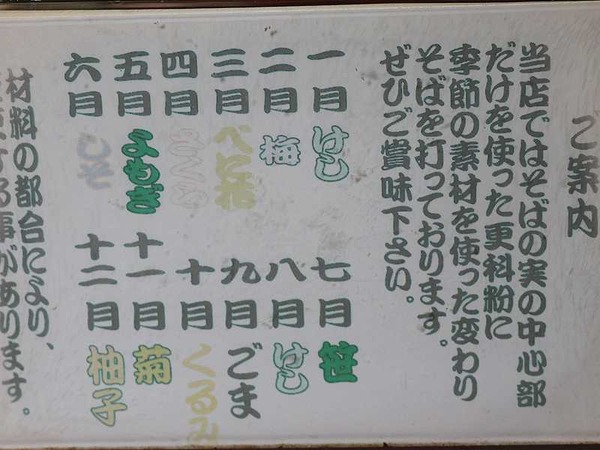 ご案内
当店ではそばの実の中心部
だけを使った更科粉に
季節の素材を使った変わり
そばを打っております。
ぜひご賞味下さい。
一月 けし
二月 梅
三月 べに花
四月 さくら
五月 よもぎ
六月 しそ
七月 笹
八月 けし
九月 ごま
十月 くるみ
十一月 菊
十二月 柚子
材料の都合により、
する事があります。